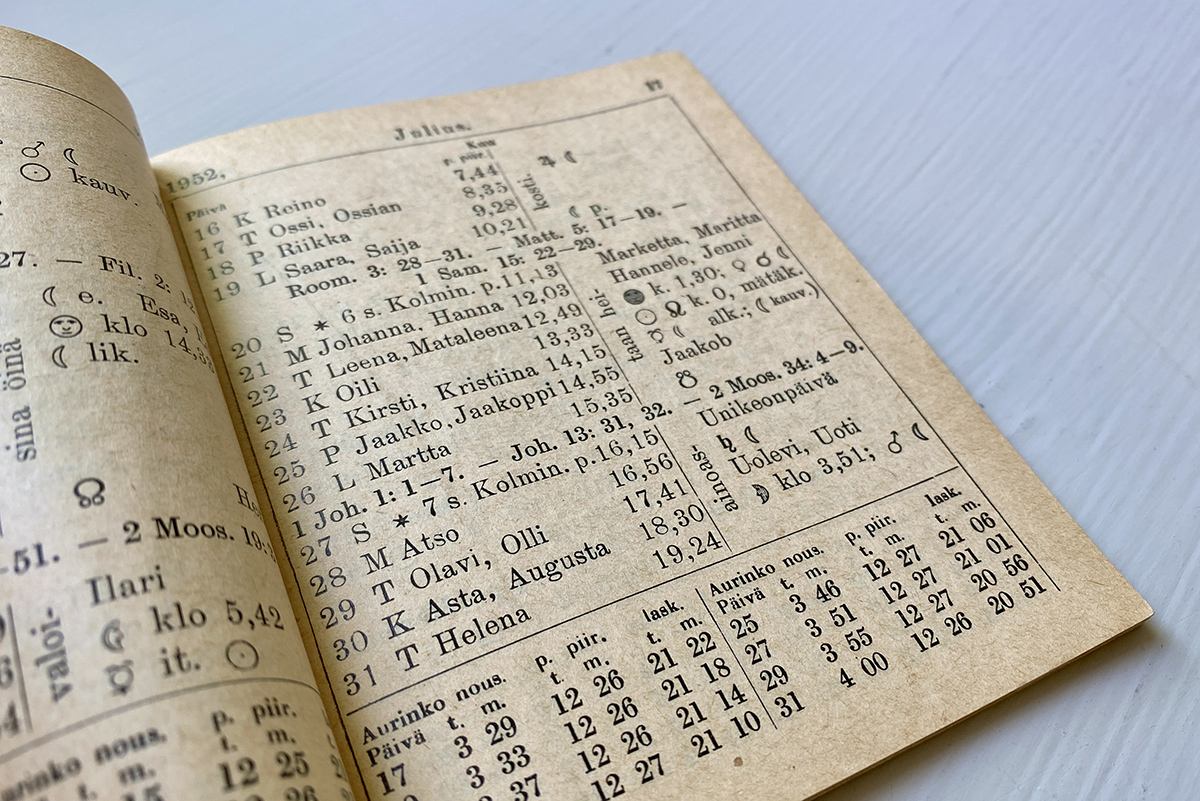 kauv.
27. — Fil. 2: 12
e. Esa,
klo 14,3
lik.
sina öinä
51. — 2 Moos. 19:
Ilari
klo 5,42
it.
valoi-
Aurinko nous. p. piir.
t. m. t. m.
12 25
Julius. 77
1952,
Päivä Kuu p. piir.
16 K Reino 7,44
17 T Ossi, Ossian 8,35
18 P Riikka 9,28
19 L Saara, Saija 10,21 ☾ p.
kosti.
♃ ☾
Room. 3: 28—31. — Matt. 5: 17—19. —
1 Sam. 15: 22—29.
20 S * 6 s. Kolmin. p. 11,13 Marketta, Maritta
21 M Johanna, Hanna 12,03 Hannele, Jenni
22 T Leena, Mataleena 12,49 ● k. 1,30; ♀ ♂ ☾
23 K Oili 13,33 ☉ ♌ k. 0, mätäk.
24 T Kirsti, Kristiina 14,15 ☿ ☾ alk.; (☾ kauv.)
25 P Jaakko, Jaakoppi 14,55 Jaakob
26 L Martta 15,35 ☋
taan hei-
1 Joh. 1: 1—7. — Joh. 13: 31, 32. — 2 Moos. 34: 4—9.
27 S * 7 s. Kolmin. p. 16,15 Unikeonpäivä
28 M Atso 16,56 ♄ ☾
29 T Olavi, Olli 17,41 Uolevi, Uoti
30 K Asta, Augusta 18,30 ☽ klo 3,51; ♂ ☾
31 T Helena 19,24
ainoas-
Aurinko nous. p. piir. lask.
Päivä t. m. t. m. t. m.
17 3 29 12 26 21 22
3 33 12 26 21 18
37 12 26 21 14
12 27 21 10
Aurinko nous. p. piir. lask.
Päivä t. m. t. m. t. m.
25 3 46 12 27 21 06
27 3 51 12 27 21 01
29 3 55 12 27 20 56
31 4 00 12 26 20 51